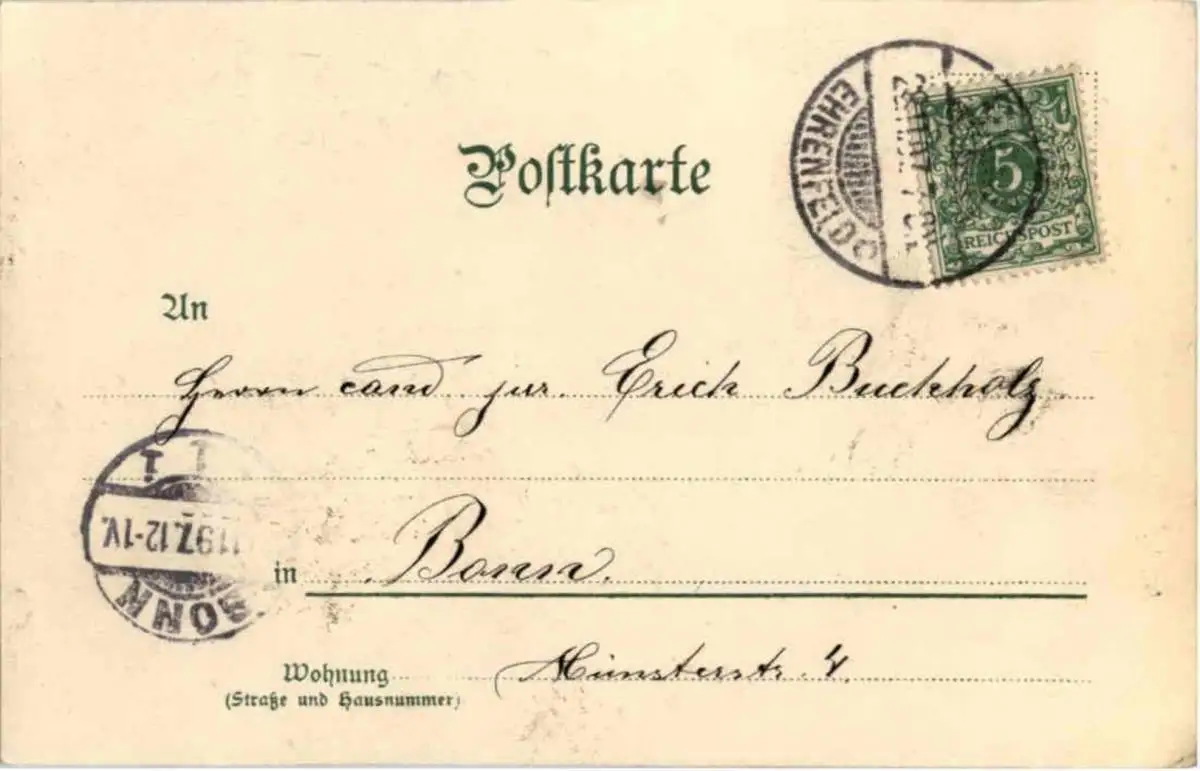 Postkarte
EHRENFELD
5
REICHSPOST
An
Herrn cand jur. Erich Buchholz
in Bonn.
1197.12-1V.
BONN
Wohnung Münsterstr. 4.
(Straße und Hausnummer)